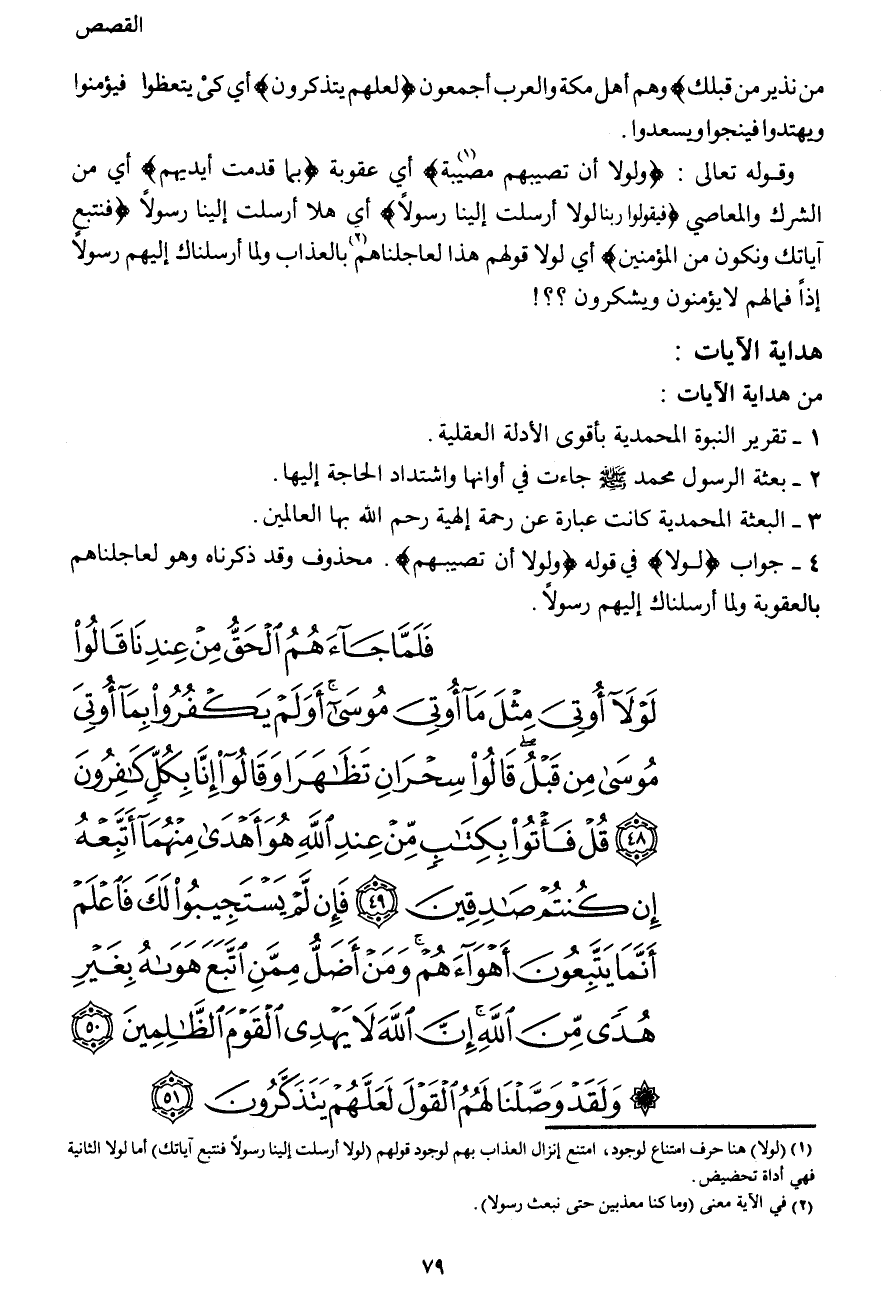 القصص
من نذير من قبلك﴾ وهم أهل مكة والعرب أجمعون ﴿لعلهم يتذكرون﴾ أي كيْ يتعظوا فيؤمنوا
ويهتدوا فينجوا ويسعدوا .
وقوله تعالى : ﴿ولولا أن تصيبهم مصيبة(١)﴾ أي عقوبة ﴿بما قدمت أيديهم﴾ أي من
الشرك والمعاصي ﴿فيقولوا ربنا لولا أرسلت إلينا رسولاً﴾ أي هلا أرسلت إلينا رسولاً ﴿فنتبع
آياتك ونكون من المؤمنين﴾ أي لولا قولهم هذا لعاجلناهم(٢) بالعذاب ولما أرسلناك إليهم رسولاً
إذاً فمالهم لا يؤمنون ويشكرون ؟؟!
هداية الآيات :
من هداية الآيات :
١ ـ تقرير النبوة المحمدية بأقوى الأدلة العقلية .
٢ ـ بعثة الرسول محمد ﷺ جاءت في أوانها واشتداد الحاجة إليها .
٣ ـ البعثة المحمدية كانت عبارة عن رحمة إلهية رحم الله بها العالمين .
٤ ـ جواب ﴿لولا﴾ في قوله ﴿ولولا أن تصيبهم﴾ . محذوف وقد ذكرناه وهو لعاجلناهم
بالعقوبة ولما أرسلناك إليهم رسولاً .
فَلَمَّا جَآءَهُمُ ٱلْحَقُّ مِنْ عِندِنَا قَالُوا۟
لَوْلَآ أُوتِىَ مِثْلَ مَآ أُوتِىَ مُوسَىٰٓ ۚ أَوَلَمْ يَكْفُرُوا۟ بِمَآ أُوتِىَ
مُوسَىٰ مِن قَبْلُ ۖ قَالُوا۟ سِحْرَانِ تَظَٰهَرَا وَقَالُوٓا۟ إِنَّا بِكُلٍّ كَٰفِرُونَ
٤٨ قُلْ فَأْتُوا۟ بِكِتَٰبٍ مِّنْ عِندِ ٱللَّهِ هُوَ أَهْدَىٰ مِنْهُمَآ أَتَّبِعْهُ
إِن كُنتُمْ صَٰدِقِينَ ٤٩ فَإِن لَّمْ يَسْتَجِيبُوا۟ لَكَ فَٱعْلَمْ
أَنَّمَا يَتَّبِعُونَ أَهْوَآءَهُمْ ۚ وَمَنْ أَضَلُّ مِمَّنِ ٱتَّبَعَ هَوَىٰهُ بِغَيْرِ
هُدًى مِّنَ ٱللَّهِ ۚ إِنَّ ٱللَّهَ لَا يَهْدِى ٱلْقَوْمَ ٱلظَّٰلِمِينَ ٥٠
۞ وَلَقَدْ وَصَّلْنَا لَهُمُ ٱلْقَوْلَ لَعَلَّهُمْ يَتَذَكَّرُونَ ٥١
(١) (لولا) هنا حرف امتناع لوجود، امتنع إنزال العذاب بهم لوجود قولهم (لولا أرسلت إلينا رسولاً فنتبع آياتك) أما لولا الثانية
فهي أداة تحضيض .
(٢) في الآية معنى (وما كنا معذبين حتى نبعث رسولا) .
٧٩